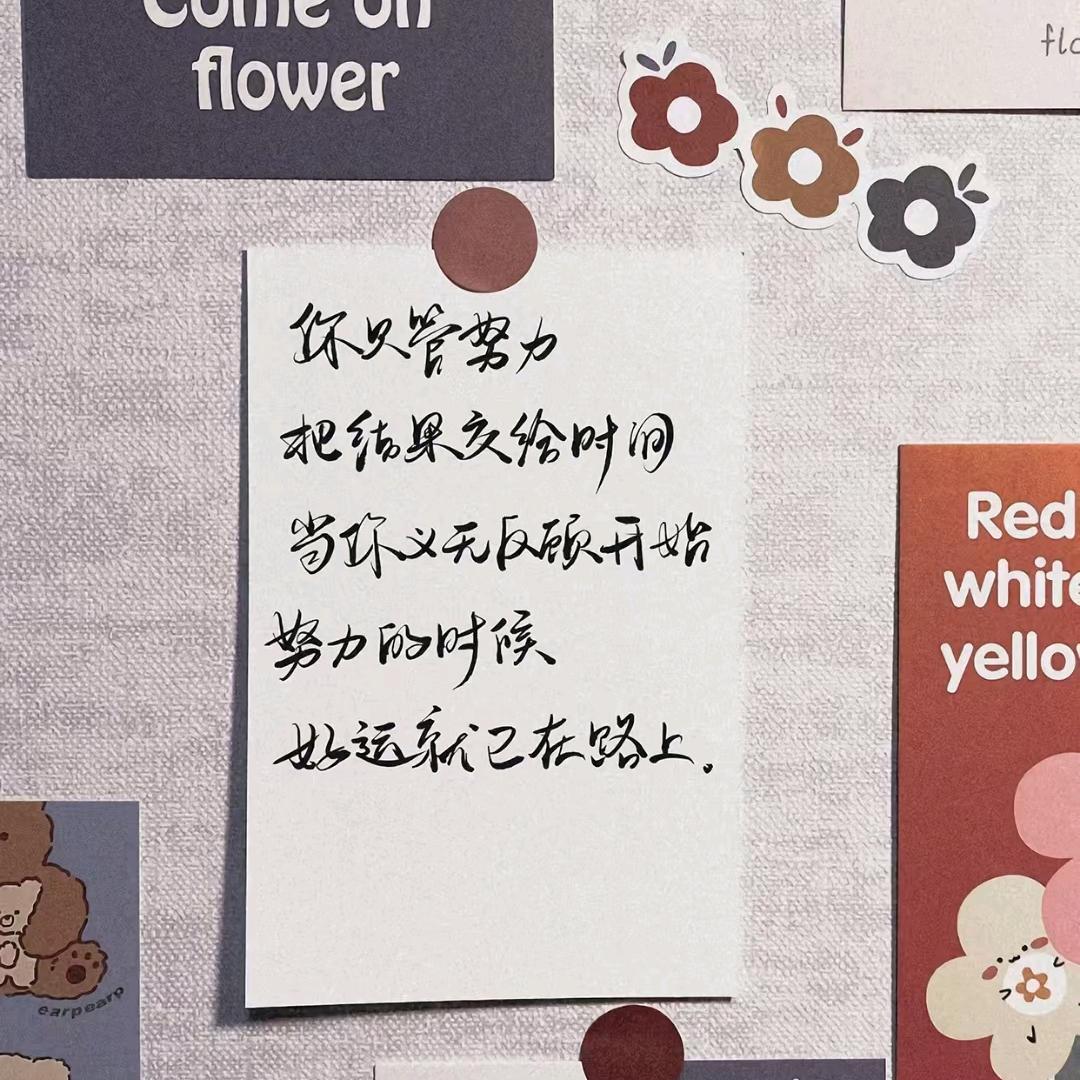 Come on
flower
flo
你只管努力
把结果交给时间
当你义无反顾开始
努力的时候
好运就已在路上。
Red
white
yellow
earpearp